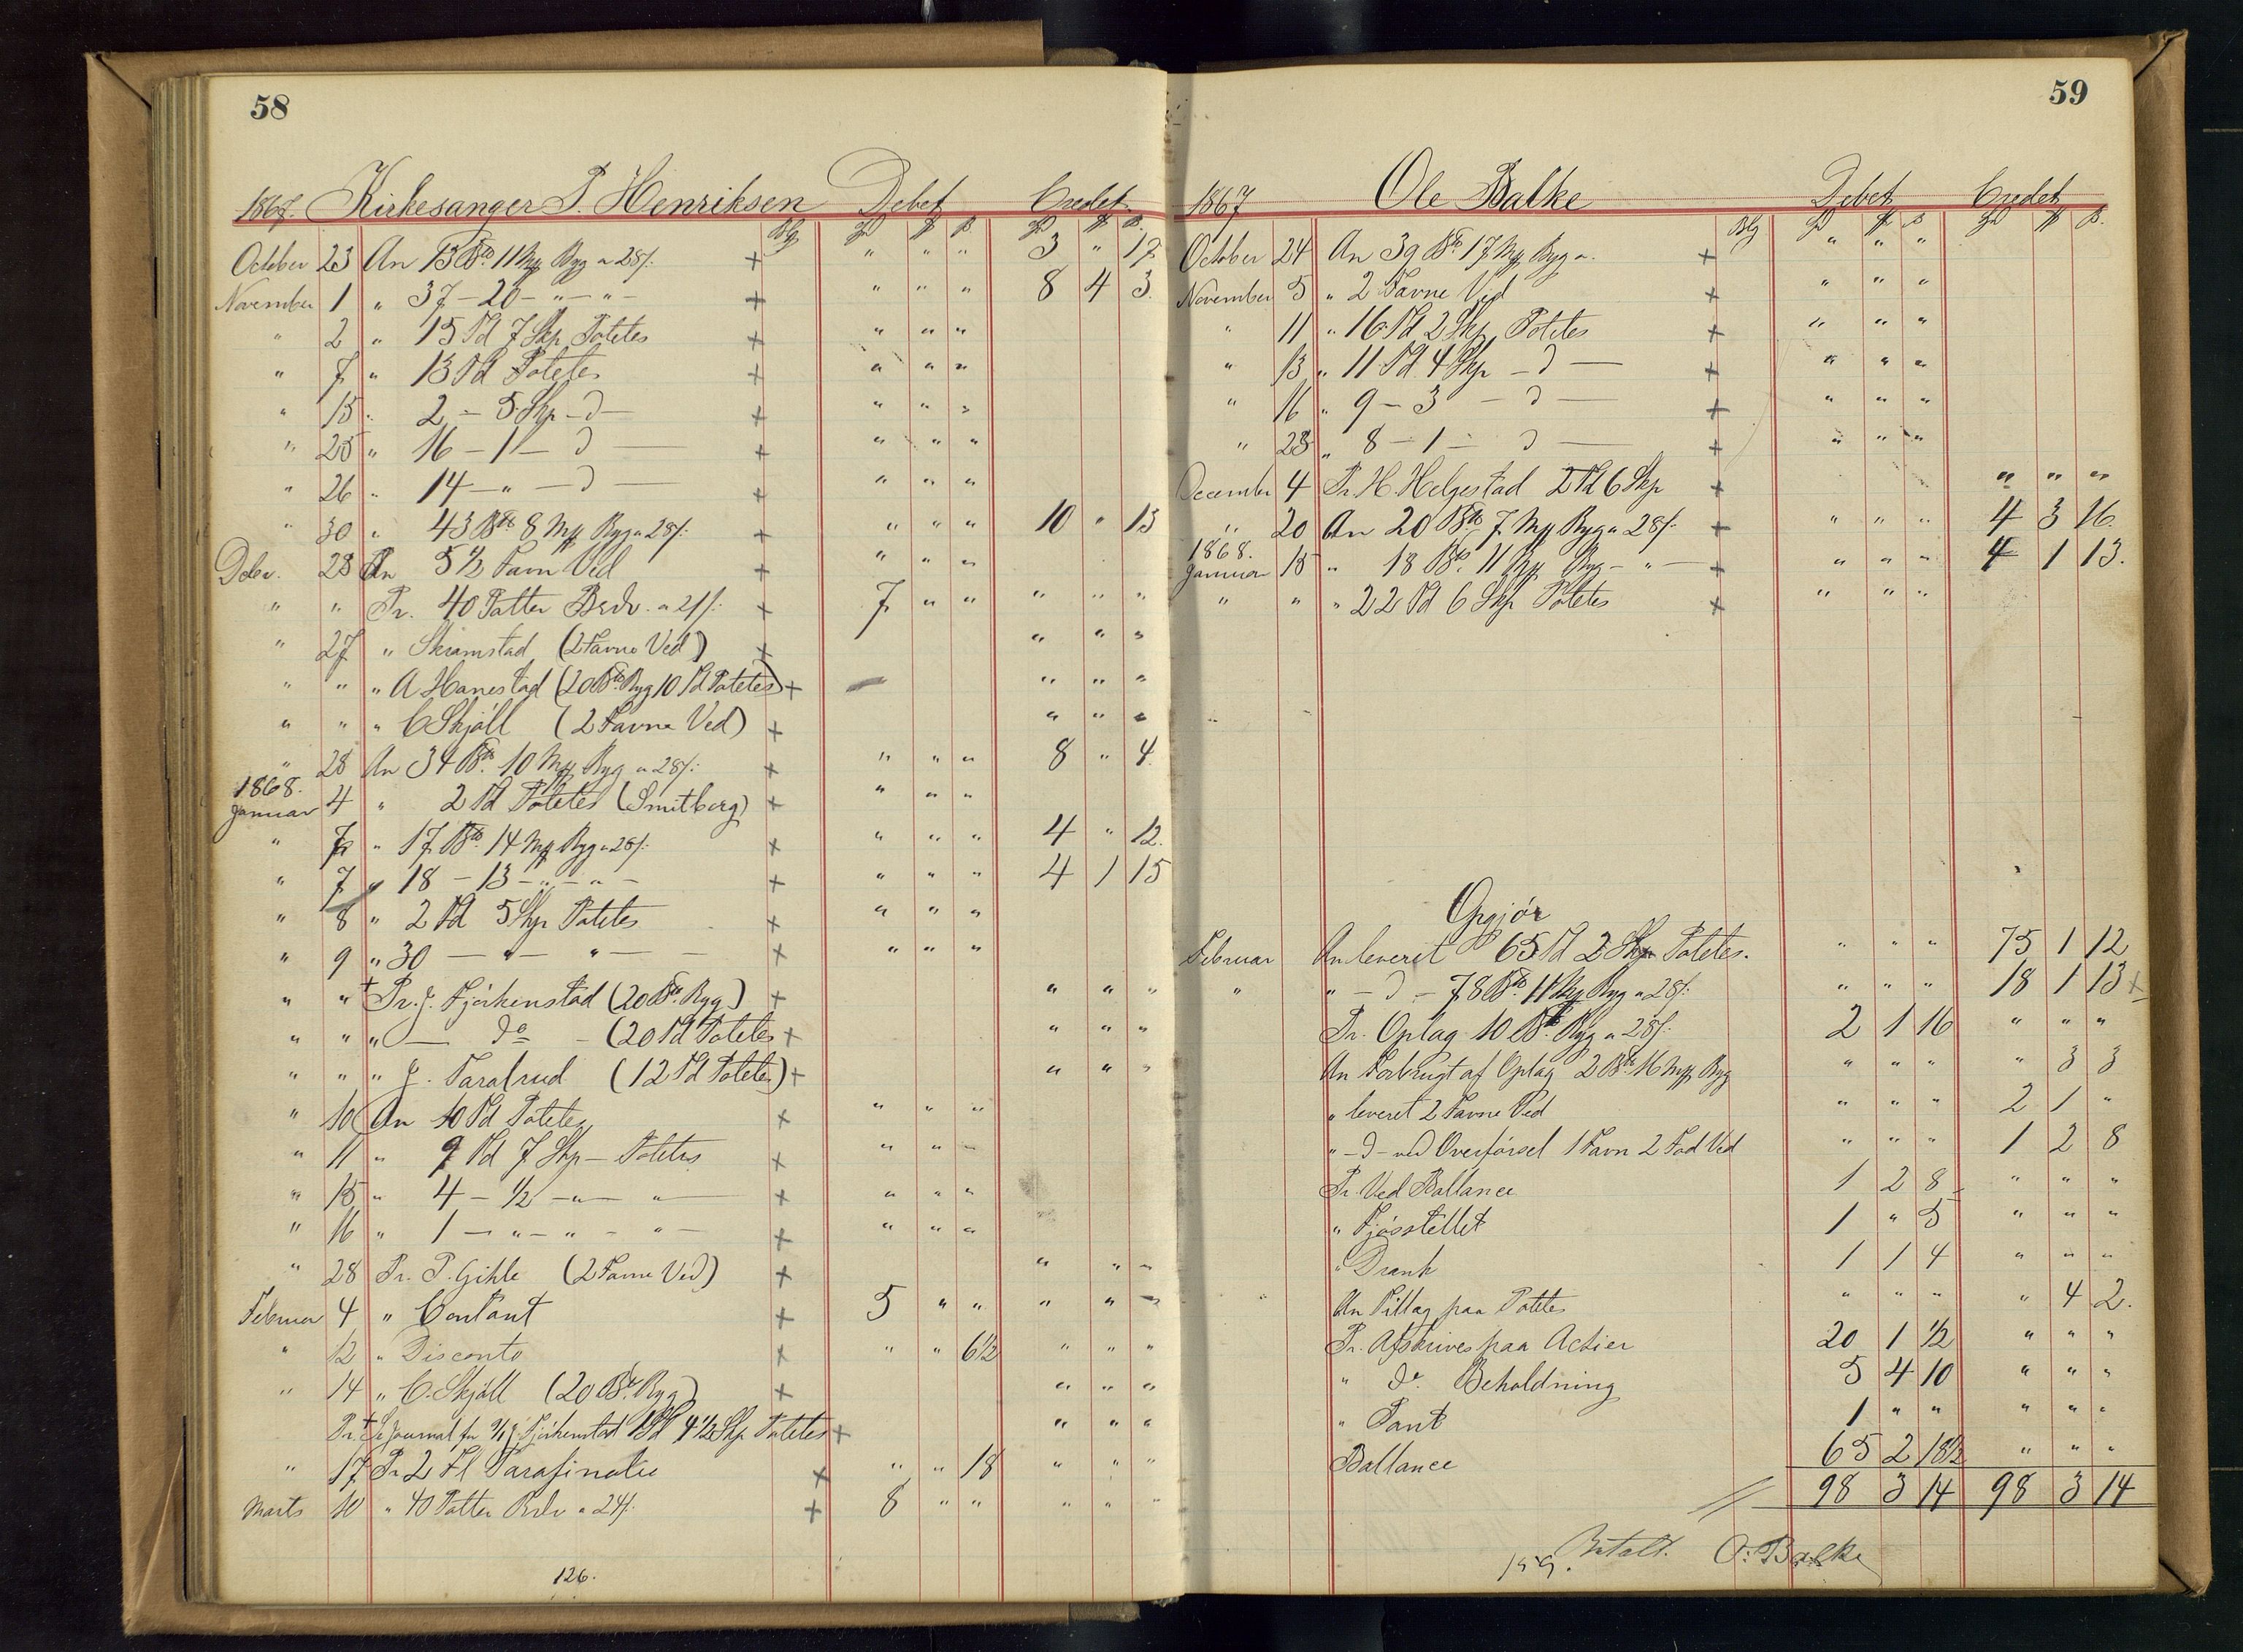 58
1867. Kirkesanger P. Henriksen Debet Credet
Blg
October 23 An 13 Bto 11 Mp Byg a 28/: + " " " 3 " 17
November 1 " 37 - 20 - " - " - + " " " 8 4 3.
" 2 " 15 Td 7 Skp Potetes + " " "
" 7 " 13 Td Potetes + " " "
" 15 " 2 - 5 Skp - d - + " " "
" 25 " 16 - 1 - d - + " " "
" 26 " 14 - " - d - + " " "
" 30 " 43 Bto 8 Mp Byg a 28/: + " " " 10 " 13
Debr. 23 An 5 1/2 Favn Ved + " " "
" " Pr. 40 Potter Brdv. a 21/: + 7 " " " " "
" 27 " Skramstad (2 Favne Ved) + " " "
" " " A Hanestad (20 Bto Byg 10 Td Potetes) + " " "
" " " C Skjöll (2 Favne Ved) + " " "
" 28 An 34 Bto 10 Mp Byg a 28/: + " " " 8 " 4.
1868.
Januar 4 " 2 Td Potetes (Smitborg) + " " "
" 7 " 17 Bto 14 Mp Byg a 28/: + " " " 4 " 12.
" 7 " 18 - 13 - " - " - + " " " 4 1 15
" 8 " 2 Td 5 Skp Potetes + " " "
" 9 " 30 - " - " - - + " " "
" " + Pr. J. Fjörkenstad (20 Bto Byg) + " " "
" " " - do - (20 Td Potetes + " " "
" " " J. Taralrud (12 Td Potetes) + " " "
" 10 An 10 Td Potetes + " " "
" 11 " 9 Td 7 Skp - Potetes + " " "
" 15 " 4 - 1/2 - " - " - + " " "
" 16 " 1 - " - " - " - + " " "
" 28 Pr. P. Gihle (2 Favne Ved) + " " "
Februar 4 " Contant + 5 " " " " "
" 12 " Disconto + " " 6 1/2 " " "
" 14 " C. Skjöll (20 Bto Byg) + " " "
Pr. + Se Journal for 9/1 J. Fjörkenstad 1 Td 4 1/2 Skp Potetes + " " "
" 17 Pr 2 Fl Parafinolie + " " 18 " " "
Marts 10 " 40 Potter Brdv a 24/: + 8 " " " " "
126.
59
1867 Ole Balke Debet Credet
Blg
October 24 An 39 Bto 17 Mp Byg a. + " " "
November 5 " 2 Favne Ved + " " "
" 11 " 16 Td 2 Skp Potetes + " " "
" 13 " 11 Td 4 Skp - d - + " " "
" 16 " 9 - 3 - d - + " " "
" 23 " 8 - 1 - d - + " " "
December 4 Pr. H. Helgestad 2 Td 6 Skp + " " "
" 20 An 20 Bto 7 Mp Byg a 28/: + " " " 4 3 16.
1868.
Januar 15 " 18 Bto 11 Mp Byg - " - + " " " 4 1 13.
" " " 22 Td 6 Skp Potetes + " " "
Opgjör
Februar An leveret 65 Td 2 Skp Potetes. " " " 75 1 12
" " - d - 78 Bto 11 Mp Byg a 28/: " " " 18 1 13 +
Pr. Oplag 10 Bto Byg a 28/: 2 1 16 " " "
An Forbrugt af Oplag 2 Bto 16 Mp Byg " " " " 3 3
" leveret 2 Favne Ved " " " 2 1 "
" - d - ved Overförsel 1 Favn 2 Fod Ved " " " 1 2 8
Pr. Ved Ballance 1 2 8 " " "
" Fjösstellet 1 " 5 " " "
" Drank 1 1 4 " " "
An Tillæg paa Potetes " " " " 4 2.
Pr. Afskrives paa Actier 20 1 1/2 " " "
" do. Beholdning 5 4 10 " " "
" Pant 1 " " " " "
Ballance 65 2 18 1/2 " " "
98 3 14 98 3 14
159. Betalt. O. Balke